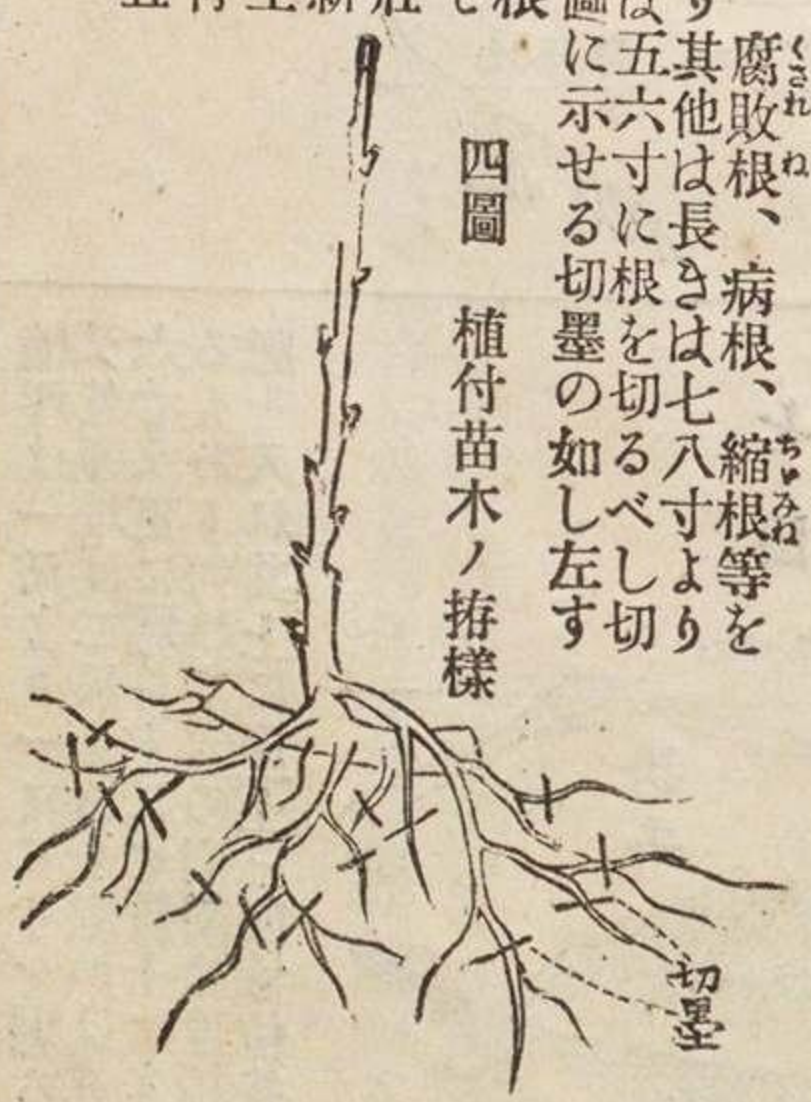 腐敗根、病根、縮根等を
くされね
ちゞみね
其他は長きは七八寸より
五六寸に根を切るべし切
に示せる切墨の如し左す
四圖 植付苗木ノ拵樣
切墨